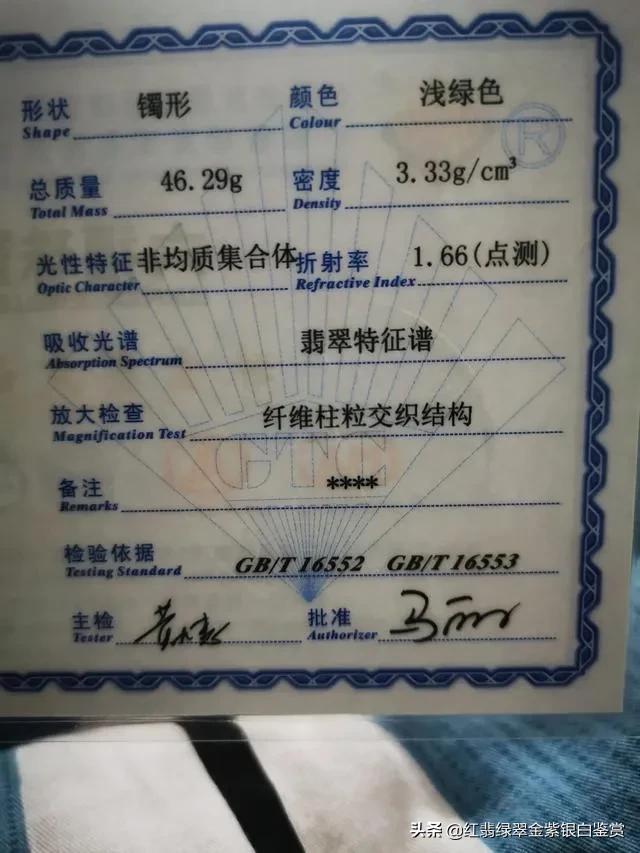 形状 镯形 颜色 浅绿色
Shape Colour
®
总质量 46.29g 密度 3.33g/cm³
Total Mass Density
光性特征 非均质集合体 折射率 1.66(点测)
Optic Character Refractive Index
吸收光谱 翡翠特征谱
Absorption Spectrum
放大检查 纤维柱粒交织结构
Magnification Test
GTC
备注 ****
Remarks
检验依据 GB/T 16552 GB/T 16553
Testing Standard
主检 批准 马丽
Tester Authorizer
头条 @红翡绿翠金紫银白鉴赏